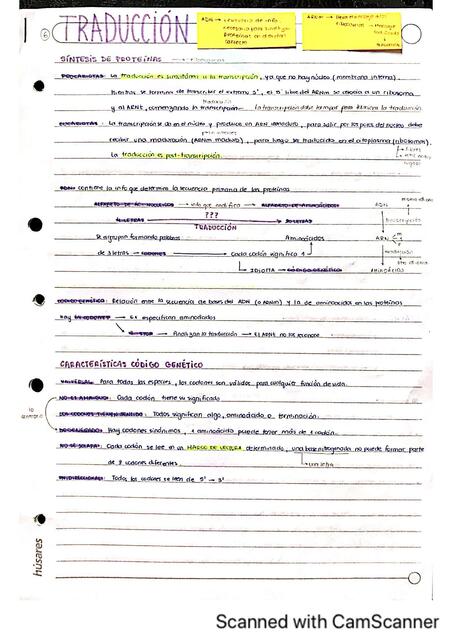 6
TRADUCCIÓN
ADN → secuencia de info.
necesaria para sintetizar
proteínas en distintas
ARNm → lleva el mensaje
ribosomas
SÍNTESIS DE PROTEÍNAS → ribosomas
PROCARIOTAS: La traducción es simultánea a la transcripción, ya que no hay núcleo (membrana interna).
Mientras se termina de transcribir el extremo 3', el 5' libre del ARNm se asocia a un ribosoma
y al ARNt, comenzando la transcripción.
La transcripción debe terminar para terminar la traducción
EUCARIOTAS: La transcripción se da en el núcleo y produce un ARN inmaduro, para salir por los poros del núcleo debe
recibir una maduración (ARNm maduro), para luego ser traducido en el citoplasma (ribosomas).
La traducción es post-transcripción.
libres
ADN: contiene la info que determina la secuencia primaria de las proteínas
ALFABETO DE AC. NUCLEICOS → info que codifica → ALFABETO DE AMINOÁCIDOS
ADN
4 LETRAS ??? 20 LETRAS
transcripción
TRADUCCIÓN
Se agrupan formando palabras
Aminoácidos
ARN
de 3 letras → CODONES → Cada codón significa 1
traducción
otro idioma
IDIOMA → CÓDIGO GENÉTICO
AMINOÁCIDOS
CÓDIGO GENÉTICO: Relación entre la secuencia de bases del ADN (o ARNm) y la de aminoácidos en las proteínas
Hay 64 CODONES → 61 especifican aminoácidos
3 STOP → Finalizan la traducción → El ARNt no los reconoce
CARACTERÍSTICAS CÓDIGO GENÉTICO
UNIVERSAL: Para todas las especies, los codones son válidos para cualquier función de vida.
NO ES AMBIGUO: Cada codón tiene su significado
LOS CODONES TIENEN SENTIDO: Todos significan algo, aminoácido o terminación.
lo contrario
DEGENERADO: Hay codones sinónimos, 1 aminoácido puede tener más de 1 codón.
NO SE SOLAPA: Cada codón se lee en un MARCO DE LECTURA determinado, una base nitrogenada no puede formar parte
de 2 codones diferentes.
una letra
UNIDIRECCIONAL: Todos los codones se leen de 5' → 3'
húsares
Scanned with CamScanner